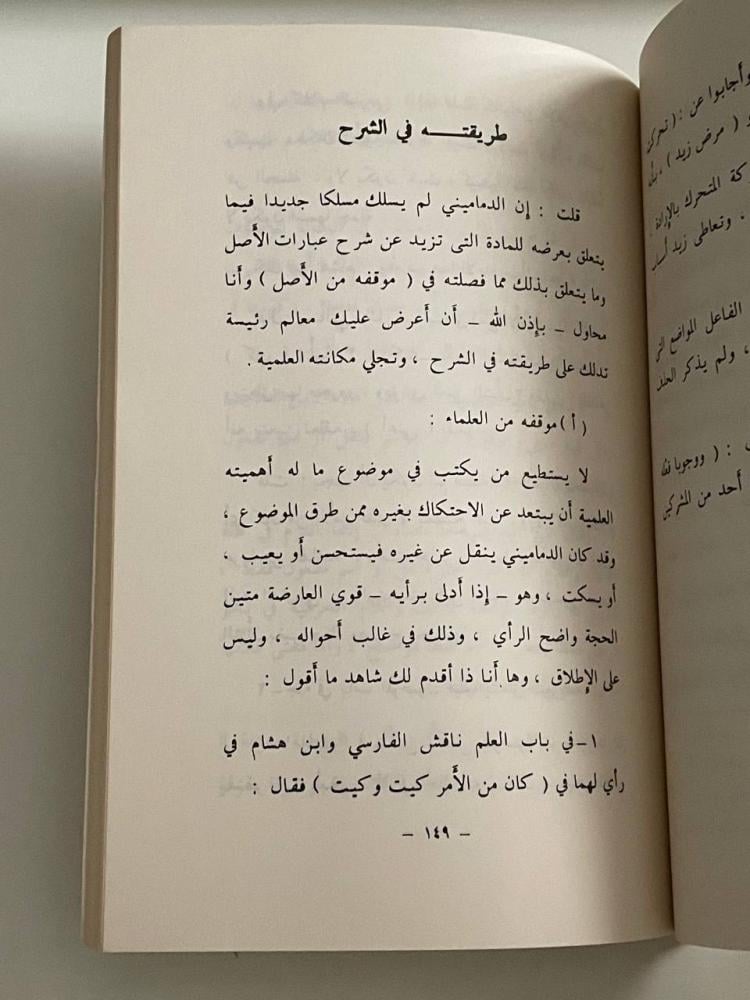 طريقتـــه في الشرح
قلت : إن الدماميني لم يسلك مسلكا جديدا فيما
يتعلق بعرضه للمادة التى تزيد عن شرح عبارات الأصل
وما يتعلق بذلك مما فصلته في ( موقفه من الأصل ) وأنا
محاول ـ بإذن الله ـ أن أعرض عليك معالم رئيسة
تدلك على طريقته في الشرح ، وتجلي مكانته العلمية .
( أ ) موقفه من العلماء :
لا يستطيع من يكتب في موضوع ما له أهميته
العلمية أن يبتعد عن الاحتكاك بغيره ممن طرق الموضوع ،
وقد كان الدماميني ينقل عن غيره فيستحسن أو يعيب ،
أو يسكت ، وهو ـ إذا أدلى برأيه ـ قوي العارضة متين
الحجة واضح الرأي ، وذلك في غالب أحواله ، وليس
على الإطلاق ، وها أنا ذا أقدم لك شاهد ما أقول :
١ـ في باب العلم ناقش الفارسي وابن هشام في
رأي لهما في ( كان من الأمر كيت وكيت ) فقال :
ـ ١٤٩ ـ
وأجابوا عن : ( تحركت
( مرض زيد ) ، بأن
كة المتحرك بالإرادة
، وتعاطى زيد أسباب
الفاعل المواضع التي
، ولم يذكر الحذف
: ( ووجوبا
أحد من المشركين